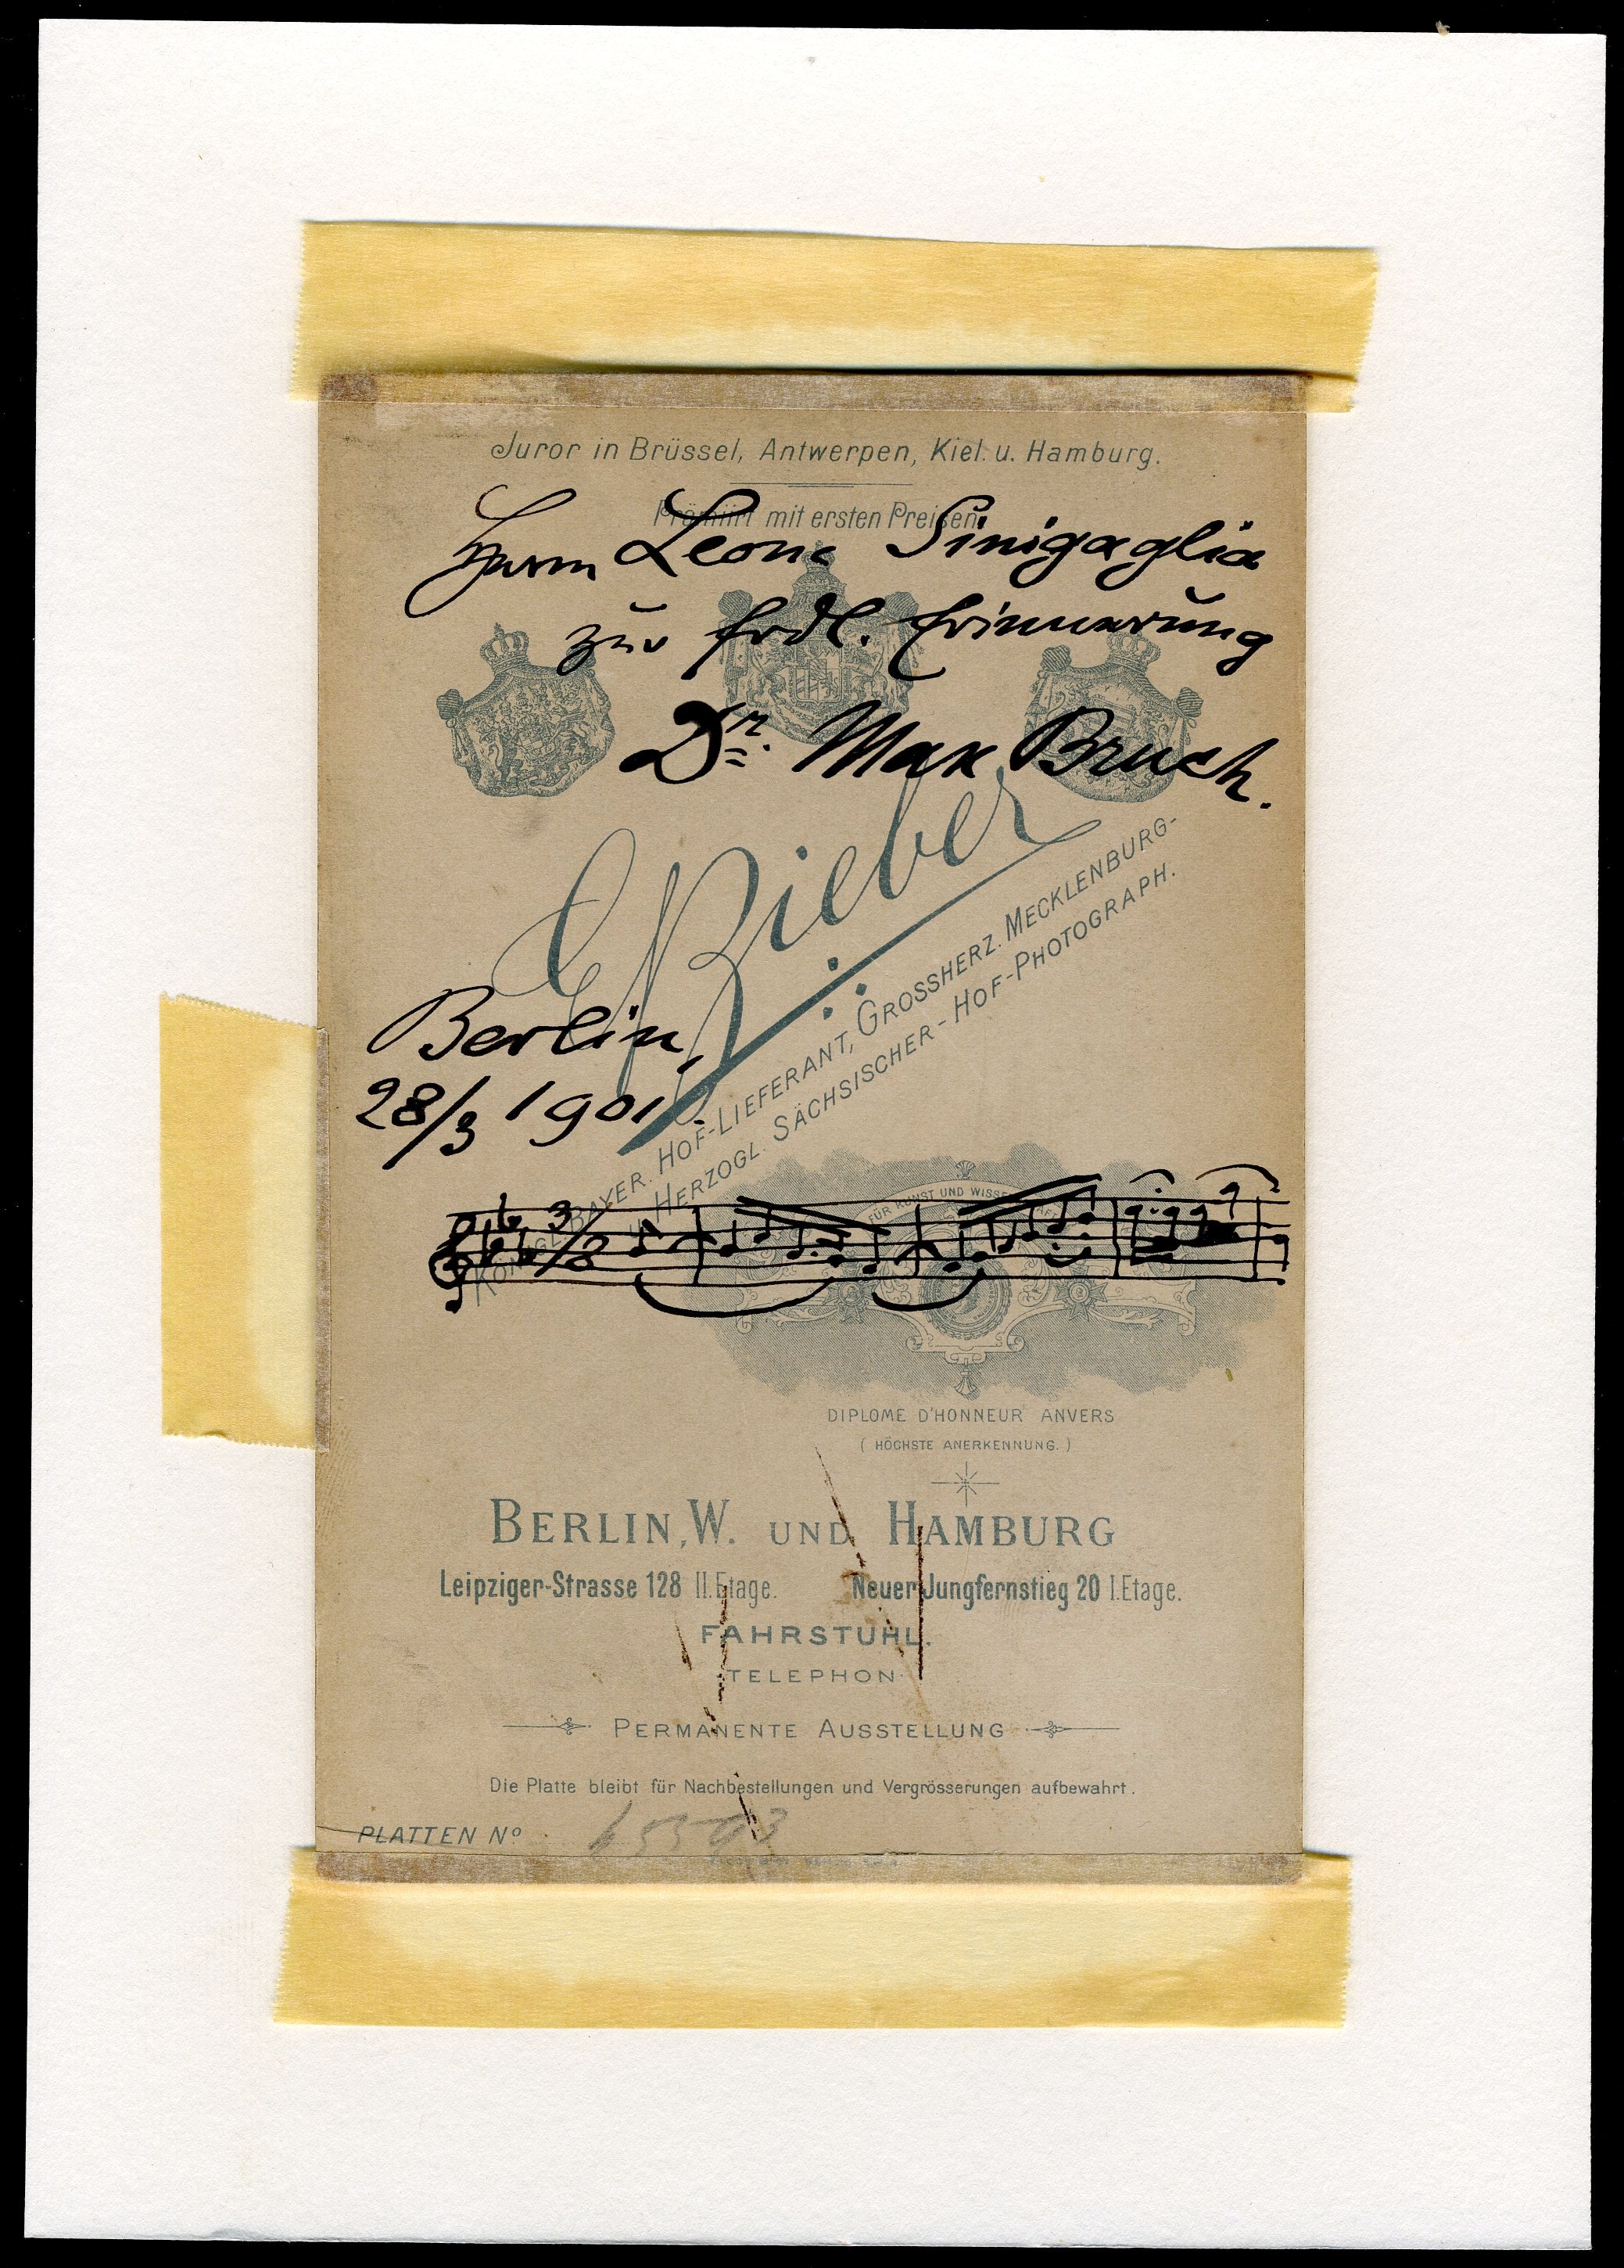 Juror in Brüssel, Antwerpen, Kiel. u. Hamburg.
Prämiirt mit ersten Preisen
Herrn Leone Sinigaglia
zur frdl. Erinnerung
Dr. Max Bruch.
E. Bieber
Königl. Bayer. Hof-Lieferant, Grossherz. Mecklenburg-
u. Herzogl. Sächsischer-Hof-Photograph.
Berlin,
28/3 1901.
3/8
FÜR KUNST UND WISSE
DIPLOME D'HONNEUR ANVERS
( HÖCHSTE ANERKENNUNG. )
BERLIN, W. UND HAMBURG
Leipziger-Strasse 128 II.Etage. Neuer Jungfernstieg 20 I.Etage.
FAHRSTUHL.
TELEPHON
PERMANENTE AUSSTELLUNG
Die Platte bleibt für Nachbestellungen und Vergrösserungen aufbewahrt.
PLATTEN No